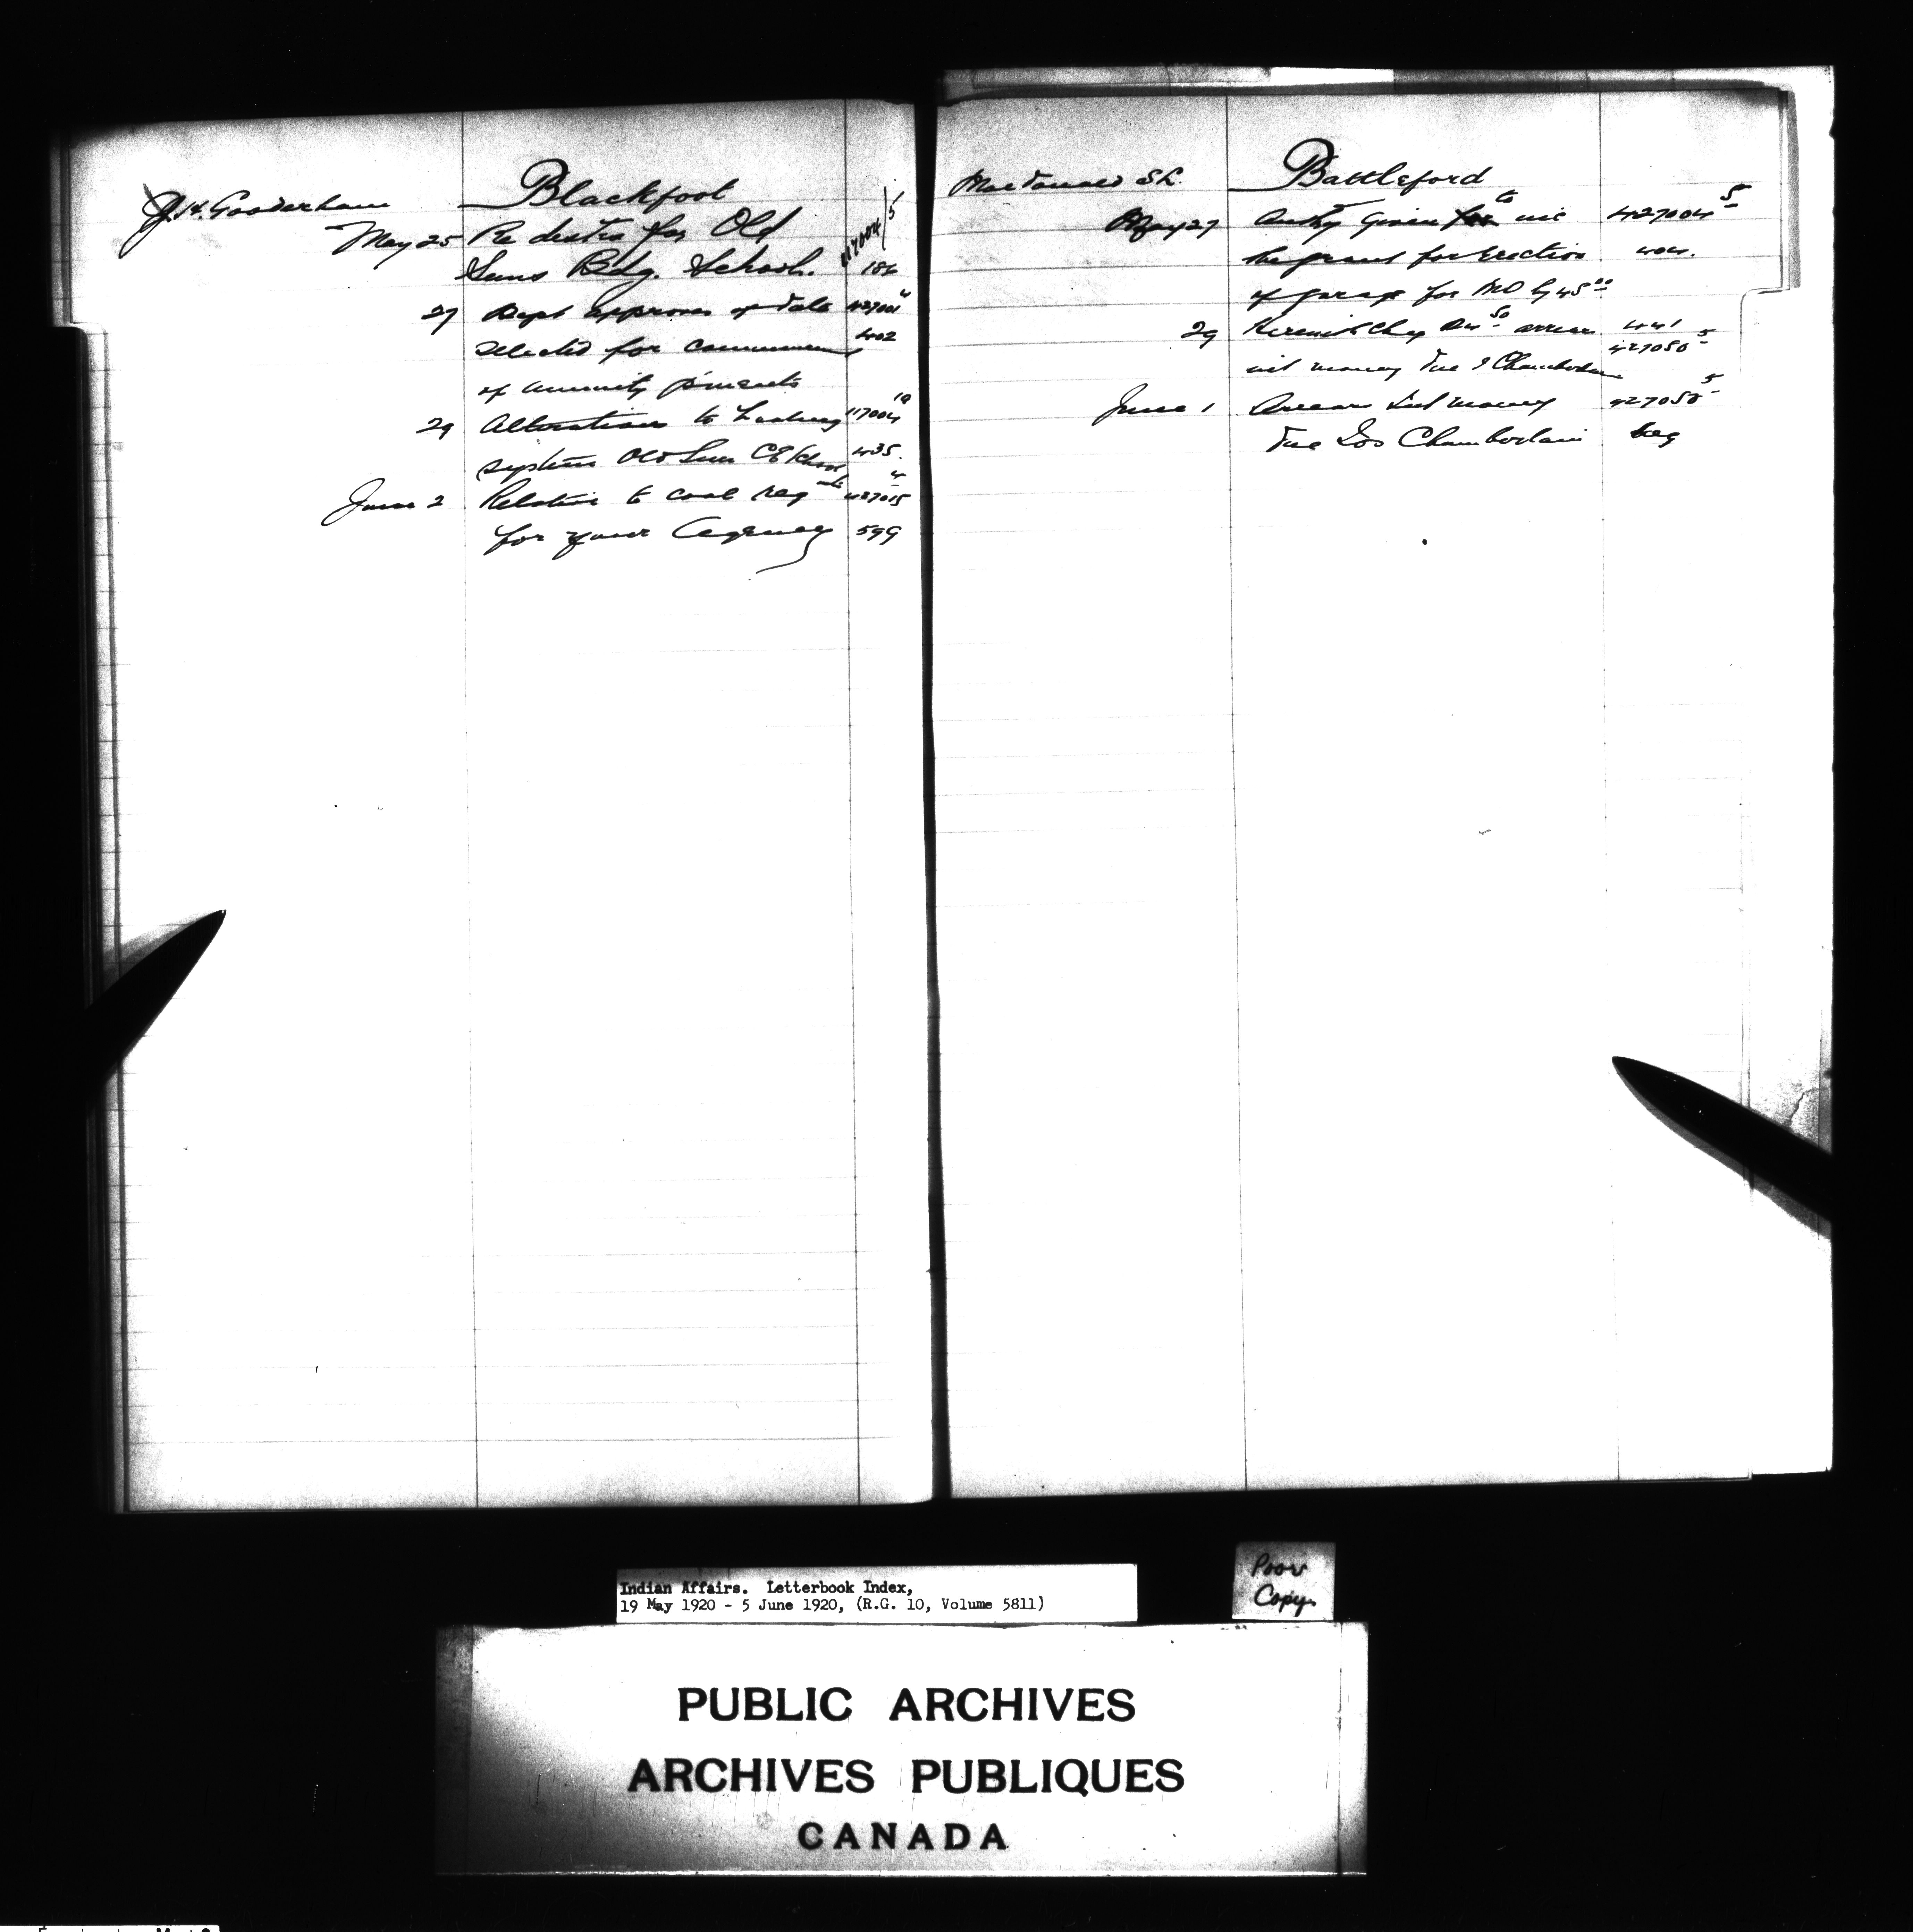 J.H. Gooderham
Blackfoot
May 25 Re destn for Old 117004/5
Suns Bdg. School. 186
27 Dept approves of date 427001 4
selected for commencement 402
of annuity p'ments
29 Alterations to heating 117004 10
system Old Sun CE School 435.
June 2 Relative to coal reqmts 427015 4
for your Agency 599
MacDonald S L.
Battleford
May 27 Authy given to inc 427004 5
the grant for Erection 404.
of garage for MO by 45 00
29 Herewith chq arrears 441
int money due J Chamberlain 427050 5
June 1 Arrears Int money 427050 5
due Jos Chamberlain
Indian Affairs. Letterbook Index,
19 May 1920 - 5 June 1920, (R.G. 10, Volume 5811)
Poor
Copy
PUBLIC ARCHIVES
ARCHIVES PUBLIQUES
CANADA